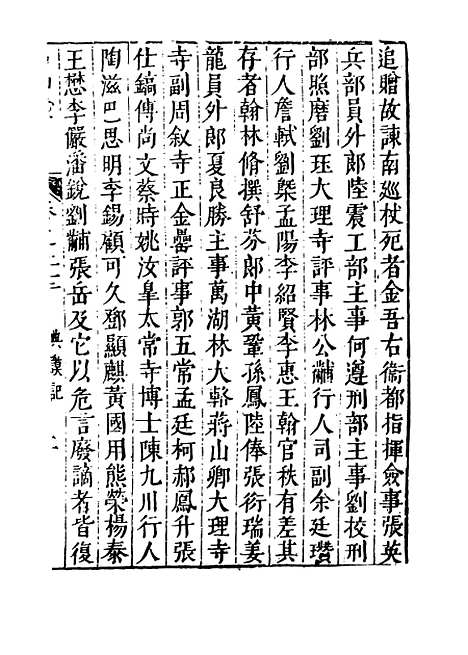 追贈故諫南廵杖死者金吾右衞都指揮僉事張英
兵部員外郎陸震工部主事何遵刑部主事劉校刑
部照磨劉珏大理寺評事林公黼行人司副余廷瓚
行人詹軾劉槩孟陽李紹賢李惠王翰官秩有差其
存者翰林脩撰舒芬郎中黃鞏孫鳳陸俸張衍瑞姜
龍員外郎夏良勝主事萬湖林大輅蔣山卿大理寺
寺副周叙寺正金罍評事郭五常孟廷柯郝鳳升張
仕鎬傅尚文蔡時姚汝皐太常寺博士陳九川行人
陶滋巴思明李錫顧可久鄧顯麒黃國用熊榮楊泰
王懋李儼潘銳劉黼張岳及它以危言廢謫者皆復